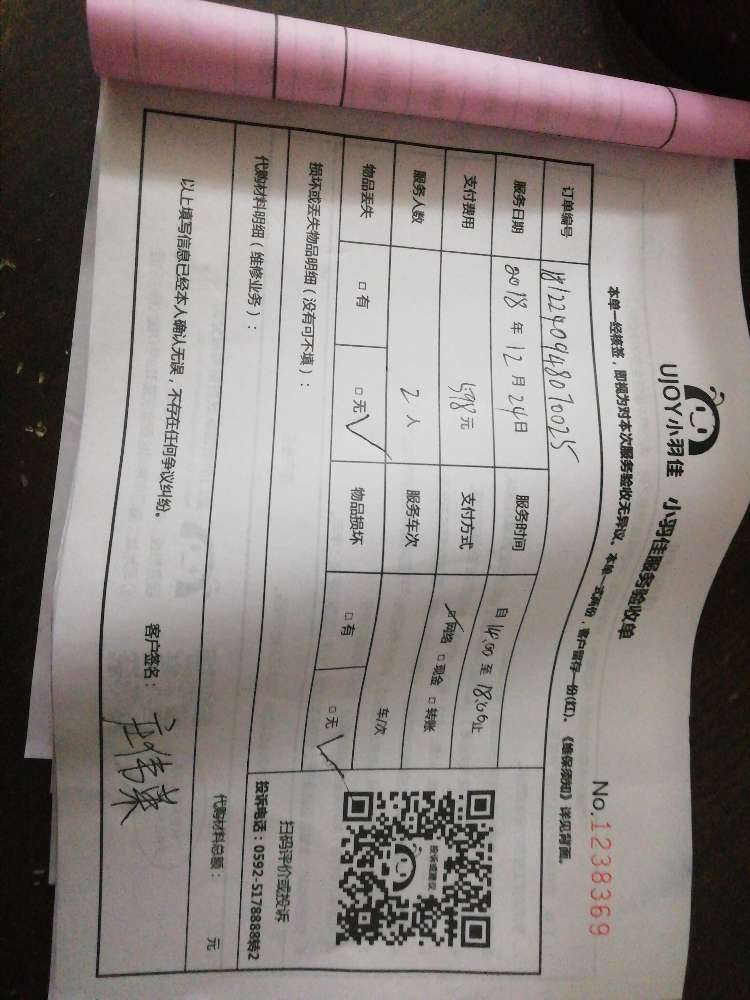 UJOY小羽佳 小羽佳服务验收单
No.1238369
本单一经核签，即视为对本次服务验收无异议。本单一式两份，客户留存一份(红)。《维保须知》详见背面。
订单编号 1812240948070025
服务日期 2018 年 12 月 24 日 服务时间 自 14:00 至 18:00 止
支付费用 598 元 支付方式 ☑网络 □现金 □转账
服务人数 2 人 服务车次 车/次
物品丢失 □有 □无 ✓ 物品损坏 □有 □无 ✓
损坏或丢失物品明细（没有可不填）：
代购材料明细（维修业务）： 代购材料总额： 元
投诉或建议
扫码评价或投诉
投诉电话：0592-5178888转2
以上填写信息已经本人确认无误，不存在任何争议纠纷。 客户签名：